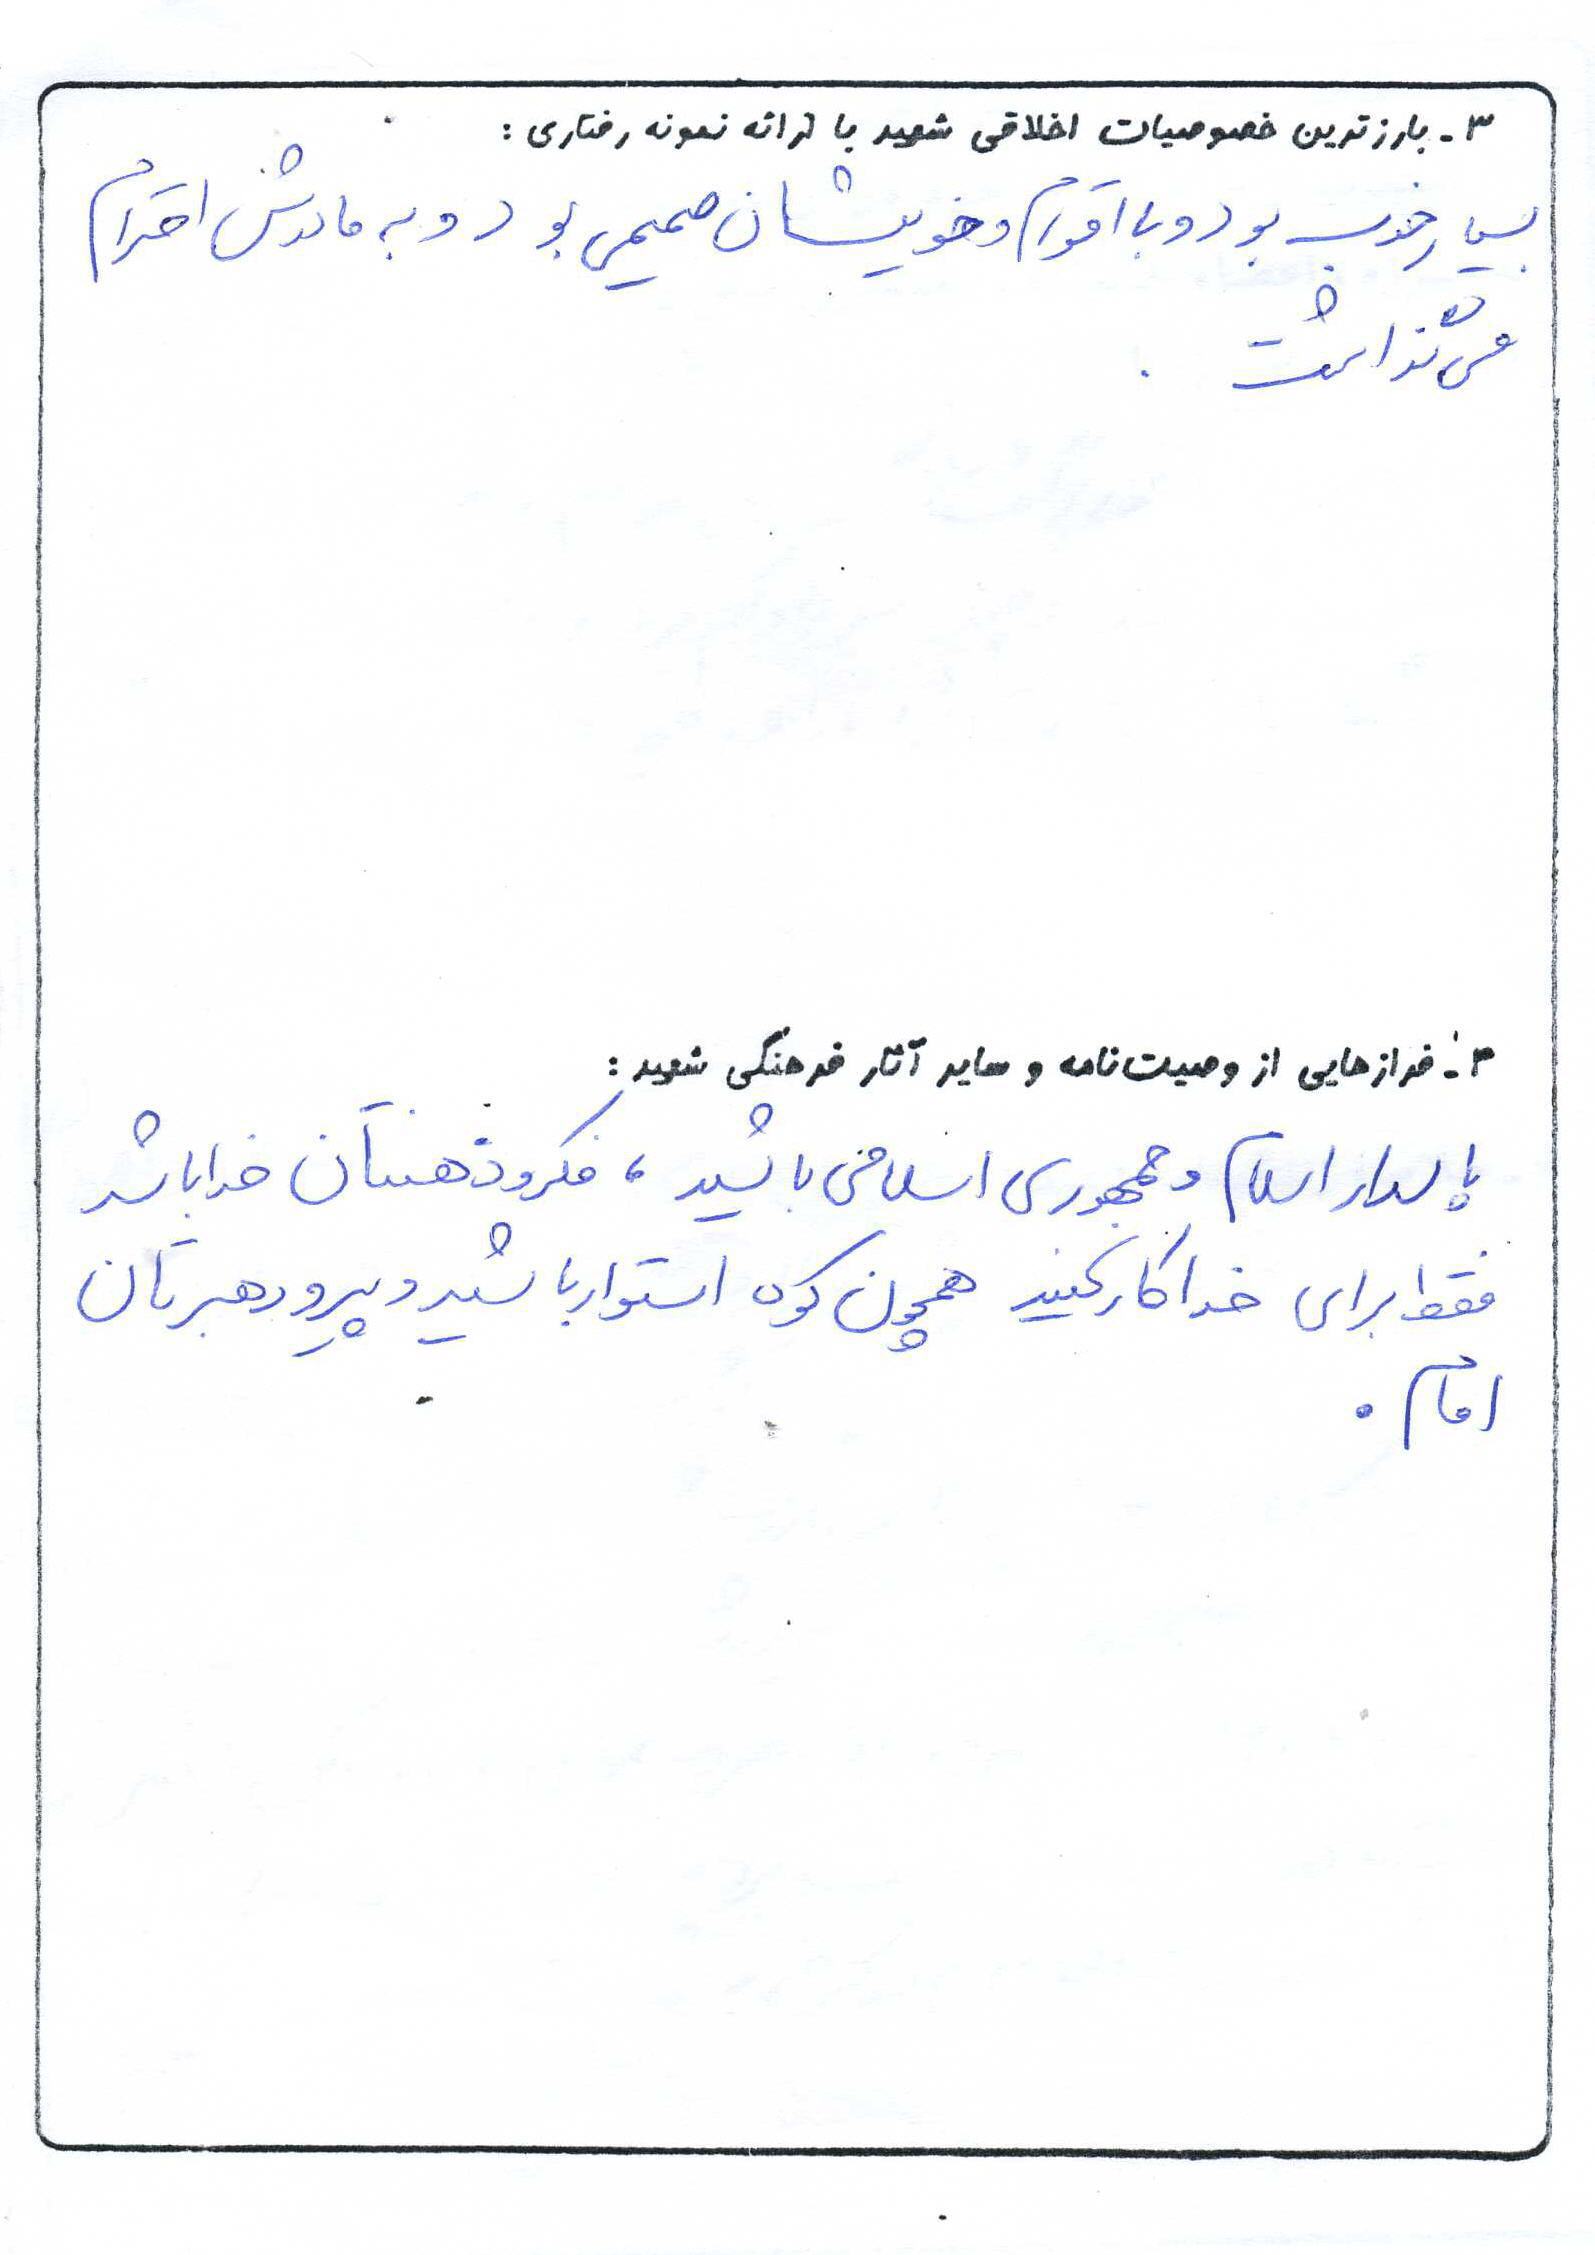 ۳- بارزترین خصوصیات اخلاقی شهید با ارائه نمونه رفتاری :
بسیار خوب بود و با اقوام و خویشان صمیمی بود و به مادرش احترام
می گذاشت .
۴- فرازهایی از وصیت‌نامه و سایر آثار فرهنگی شهید :
پاسدار اسلام و جمهوری اسلامی باشید ، فکر و ذهنتان خدا باشد
فقط برای خدا کار کنید همچون کوه استوار باشید و پیرو رهبرتان
امام .